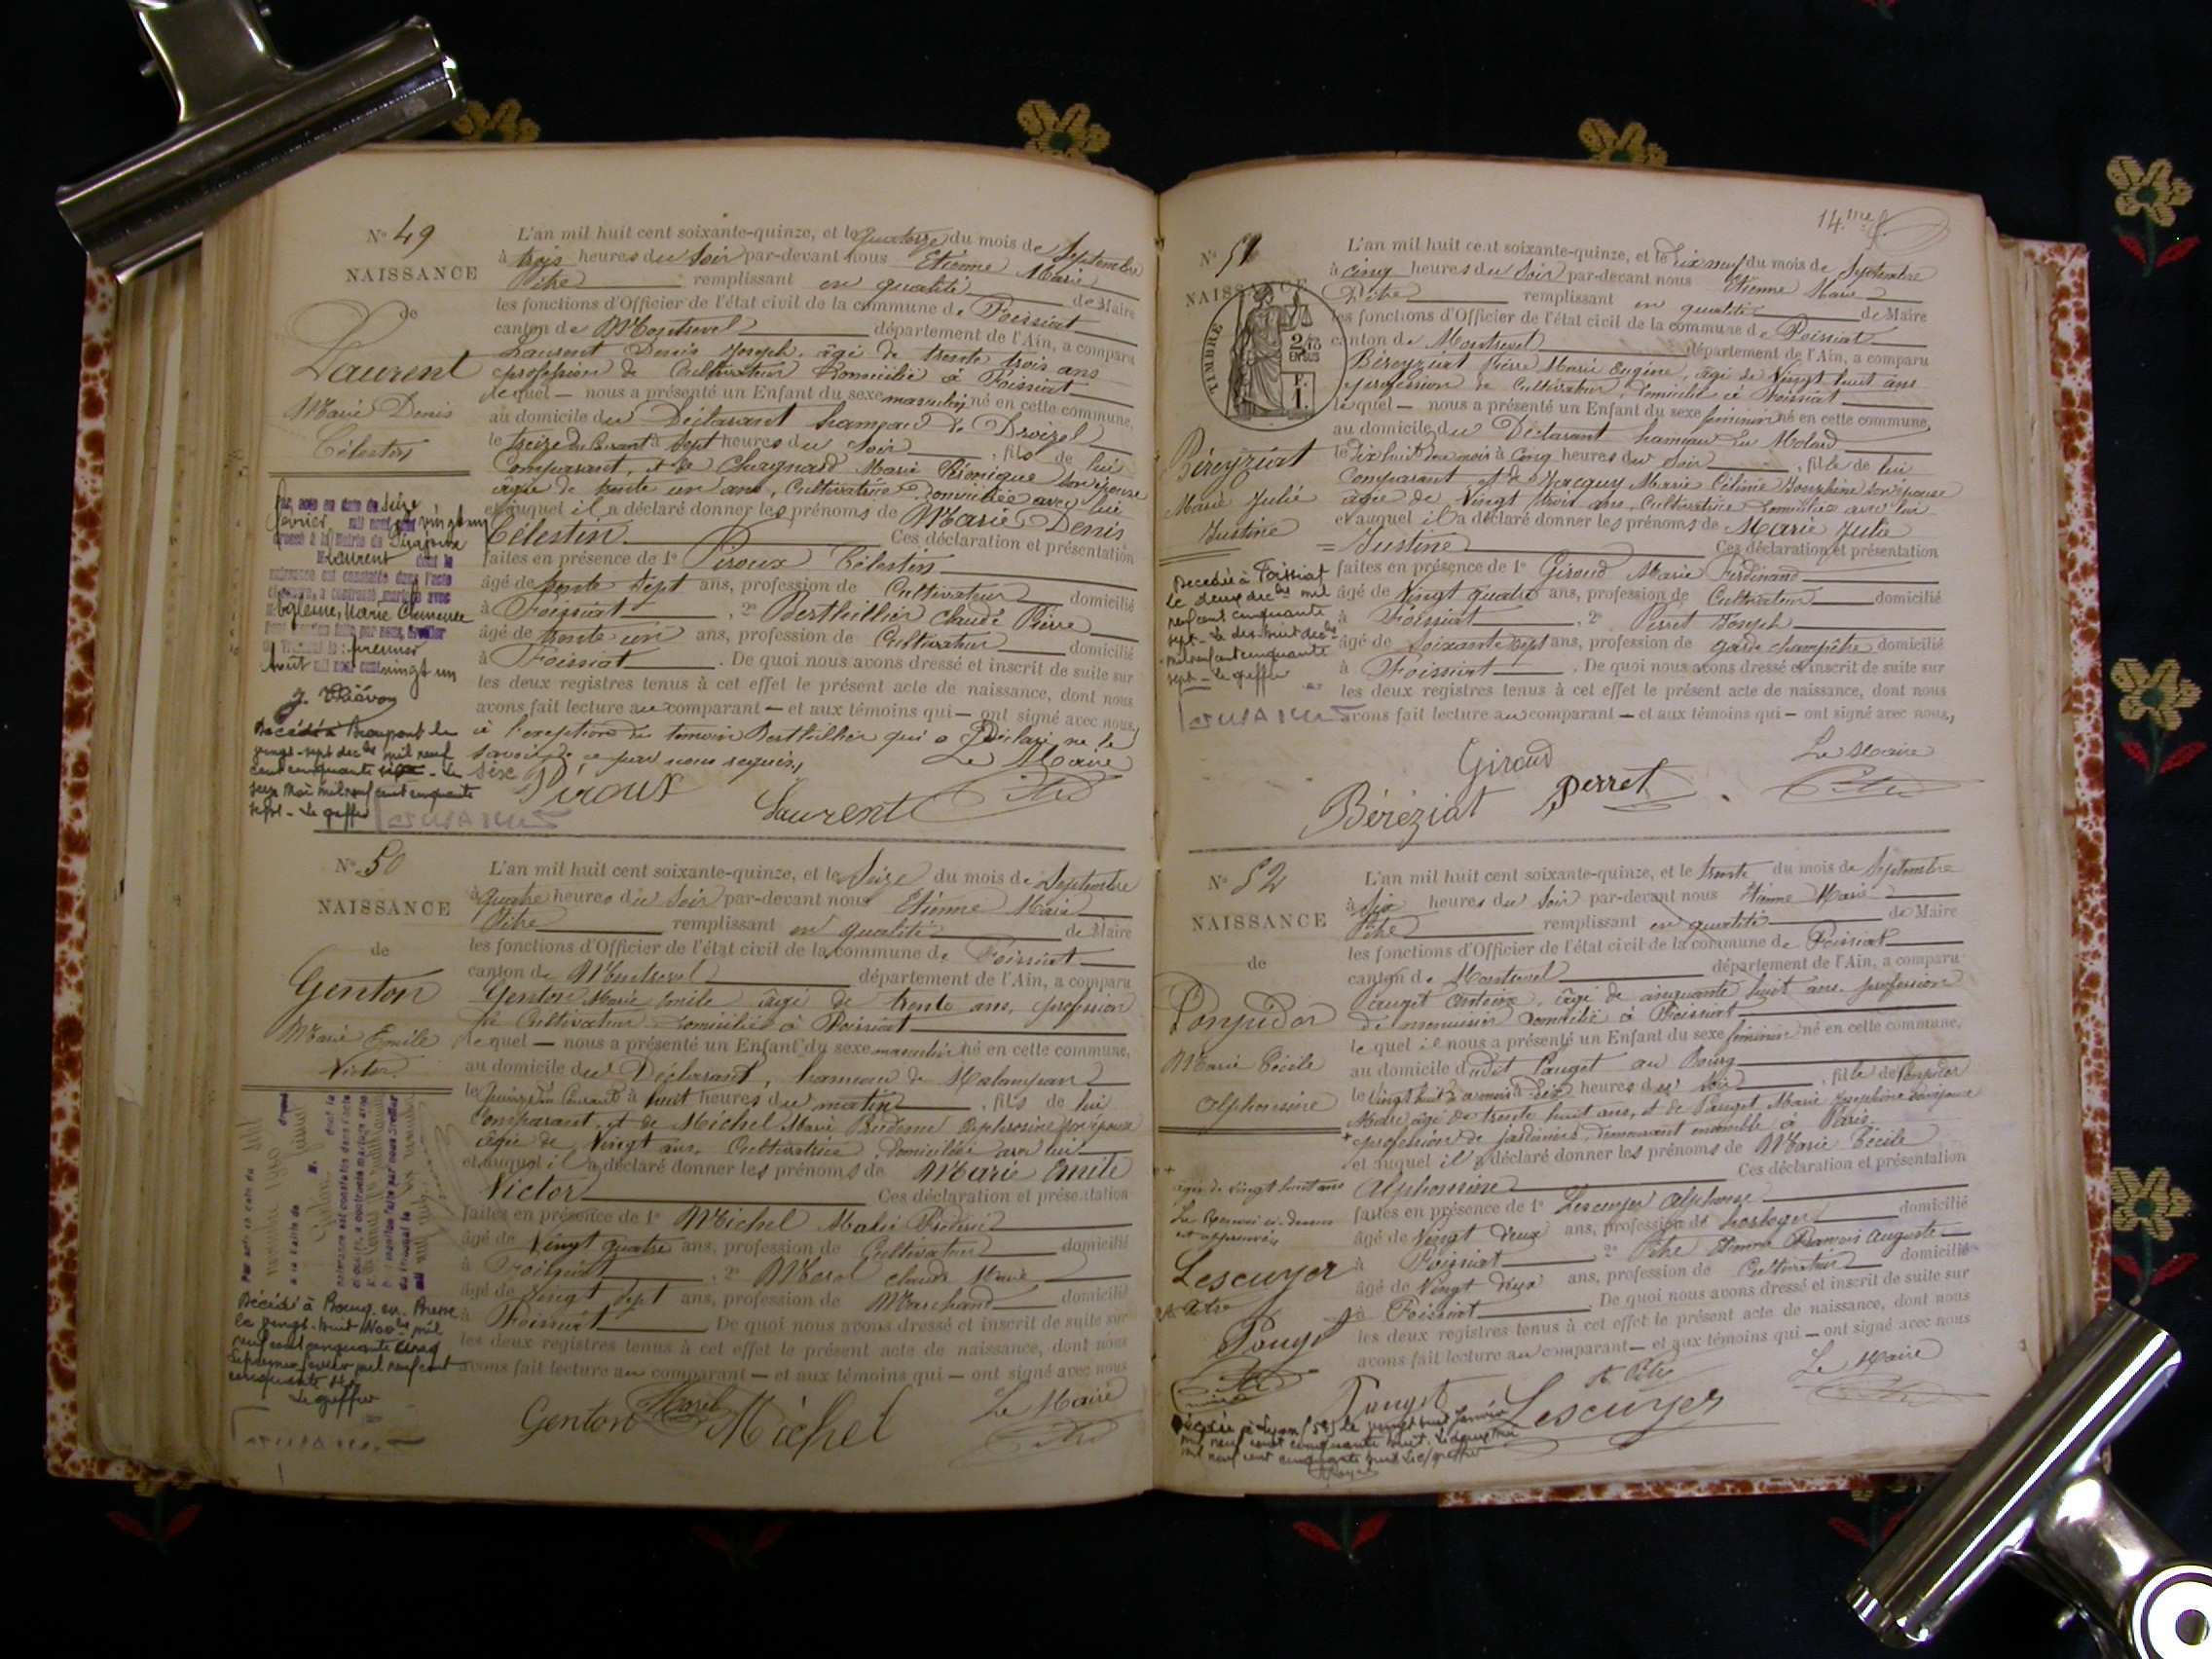 N° 49
NAISSANCE
de
Laurent
Marie Denis
Célestin
L'an mil huit cent soixante-quinze, et le quatorze du mois de Septembre
à trois heures du Soir par-devant nous Etienne Marie
Pitre remplissant en qualité de Maire
les fonctions d'Officier de l'état civil de la commune de Foissiat
canton de Montrevel département de l'Ain, a comparu
Laurent Denis Joseph, âgé de trente trois ans
profession de Cultivateur domicilié à Foissiat
lequel — nous a présenté un Enfant du sexe masculin né en cette commune,
au domicile du Déclarant hameau de
le treize du Courant à Sept heures du Soir, fils de lui
Comparant, et de Marie son épouse
âgée de trente un ans, Cultivatrice domiciliée avec lui
et auquel il a déclaré donner les prénoms de Marie Denis
Célestin Ces déclaration et présentation
faites en présence de 1° Piroux Célestin
âgé de trente Sept ans, profession de Cultivateur domicilié
à Foissiat, 2° Berthillier Claude Pierre
âgé de trente un ans, profession de Cultivateur domicilié
à Foissiat. De quoi nous avons dressé et inscrit de suite sur
les deux registres tenus à cet effet le présent acte de naissance, dont nous
avons fait lecture au comparant — et aux témoins qui — ont signé avec nous,
à l'exception du témoin Berthillier qui a Déclaré ne le
savoir de ce par nous requis,
Le Maire
Piroux
Laurent
Par acte en date du seize
février mil neuf cent vingt un
dressé à la Mairie de
Laurent dont la
naissance est constatée dans l'acte
ci-contre, a contracté mariage avec
Marie
premier
Août mil neuf cent vingt un
Décédé à Beaupont le
vingt-sept décbre mil neuf
cent cinquante six - Le
mai mil neuf cent cinquante
sept - Le greffier
N° 50
NAISSANCE
de
Genton
Marie Emile
Victor
L'an mil huit cent soixante-quinze, et le Seize du mois de Septembre
à quatre heures du Soir par-devant nous Etienne Marie
Pitre remplissant en qualité de Maire
les fonctions d'Officier de l'état civil de la commune de Foissiat
canton de Montrevel département de l'Ain, a comparu
Genton Marie Emile âgé de trente ans, profession
de Cultivateur domicilié à Foissiat
lequel — nous a présenté un Enfant du sexe masculin né en cette commune,
au domicile du Déclarant, hameau de
le quinze du Courant à huit heures du matin, fils de lui
Comparant, et de Michel Marie son épouse
âgée de Vingt ans, Cultivatrice, domiciliée avec lui
et auquel il a déclaré donner les prénoms de Marie Emile
Victor Ces déclaration et présentation
faites en présence de 1° Michel
âgé de Vingt quatre ans, profession de Cultivateur domicilié
à Foissiat, 2° Morel Claude Marie
âgé de Vingt Sept ans, profession de Marchand domicilié
à Foissiat De quoi nous avons dressé et inscrit de suite sur
les deux registres tenus à cet effet le présent acte de naissance, dont nous
avons fait lecture au comparant — et aux témoins qui — ont signé avec nous
Genton Morel Michel
Le Maire
Décédé à Bourg-en-Bresse
le vingt-huit Novbre mil
neuf cent cinquante cinq
février mil neuf cent
cinquante six
Le greffier
14me f
N° 51
NAISSANCE
TIMBRE
2/10
EN SUS
Béreyziat
Marie Julie
Justine
L'an mil huit cent soixante-quinze, et le dix neuf du mois de Septembre
à cinq heures du Soir par-devant nous Etienne Marie
Pitre remplissant en qualité de Maire
les fonctions d'Officier de l'état civil de la commune de Foissiat
canton de Montrevel département de l'Ain, a comparu
Béreyziat Pierre Marie Eugène, âgé de Vingt huit ans
profession de Cultivateur, domicilié à Foissiat
lequel — nous a présenté un Enfant du sexe féminin né en cette commune,
au domicile du Déclarant hameau du Molard
le dix huit du mois à Cinq heures du Soir, fille de lui
Comparant, et de Jacquy Marie Célinie Joséphine son épouse
âgée de Vingt trois ans, Cultivatrice domiciliée avec lui
et auquel il a déclaré donner les prénoms de Marie Julie
Justine Ces déclaration et présentation
faites en présence de 1° Giroud Marie Ferdinand
âgé de Vingt quatre ans, profession de Cultivateur domicilié
à Foissiat, 2° Perret Joseph
âgé de Soixante Sept ans, profession de garde champêtre domicilié
à Foissiat. De quoi nous avons dressé et inscrit de suite sur
les deux registres tenus à cet effet le présent acte de naissance, dont nous
avons fait lecture au comparant — et aux témoins qui — ont signé avec nous,
Le Maire
Giroud
Béréziat Perret
Décédée à Foissiat
le deux décbre mil
neuf cent cinquante
sept - Le dix-huit décbre
mil neuf cent cinquante
sept - Le greffier
N° 52
NAISSANCE
de
Ponpidor
Marie Cécile
Alphonsine
L'an mil huit cent soixante-quinze, et le trente du mois de Septembre
à Six heures du Soir par-devant nous Etienne Marie
Pitre remplissant en qualité de Maire
les fonctions d'Officier de l'état civil de la commune de Foissiat
canton de Montrevel département de l'Ain, a comparu
Pauget Antoine, âgé de cinquante huit ans, profession
de menuisier domicilié à Foissiat
lequel il nous a présenté un Enfant du sexe féminin né en cette commune,
au domicile dudit Pauget au Bourg
le Vingt huit du mois à Dix heures du Soir, fille de Ponpidor
âgé de trente huit ans, et de Pauget Marie Joséphine son épouse
+ profession de jardiniers, demeurant ensemble à Paris
et auquel il a déclaré donner les prénoms de Marie Cécile
Alphonsine Ces déclaration et présentation
faites en présence de 1° Lescuyer Alphonse
âgé de Vingt deux ans, profession de horloger domicilié
à Foissiat, 2° Pitre Etienne François Auguste
âgé de Vingt deux ans, profession de Cultivateur domicilié
à Foissiat De quoi nous avons dressé et inscrit de suite sur
les deux registres tenus à cet effet le présent acte de naissance, dont nous
avons fait lecture au comparant — et aux témoins qui — ont signé avec nous
Le Maire
Pauget A Pitre Lescuyer
+
âgée de vingt huit ans
Le Renvoi ci-dessus
est approuvé
Lescuyer
A Pitre
Pauget
Décédée à Lyon (5e) le vingt huit Janvier
mil neuf cent cinquante huit. Le deux Mai
mil neuf cent cinquante huit Le greffier